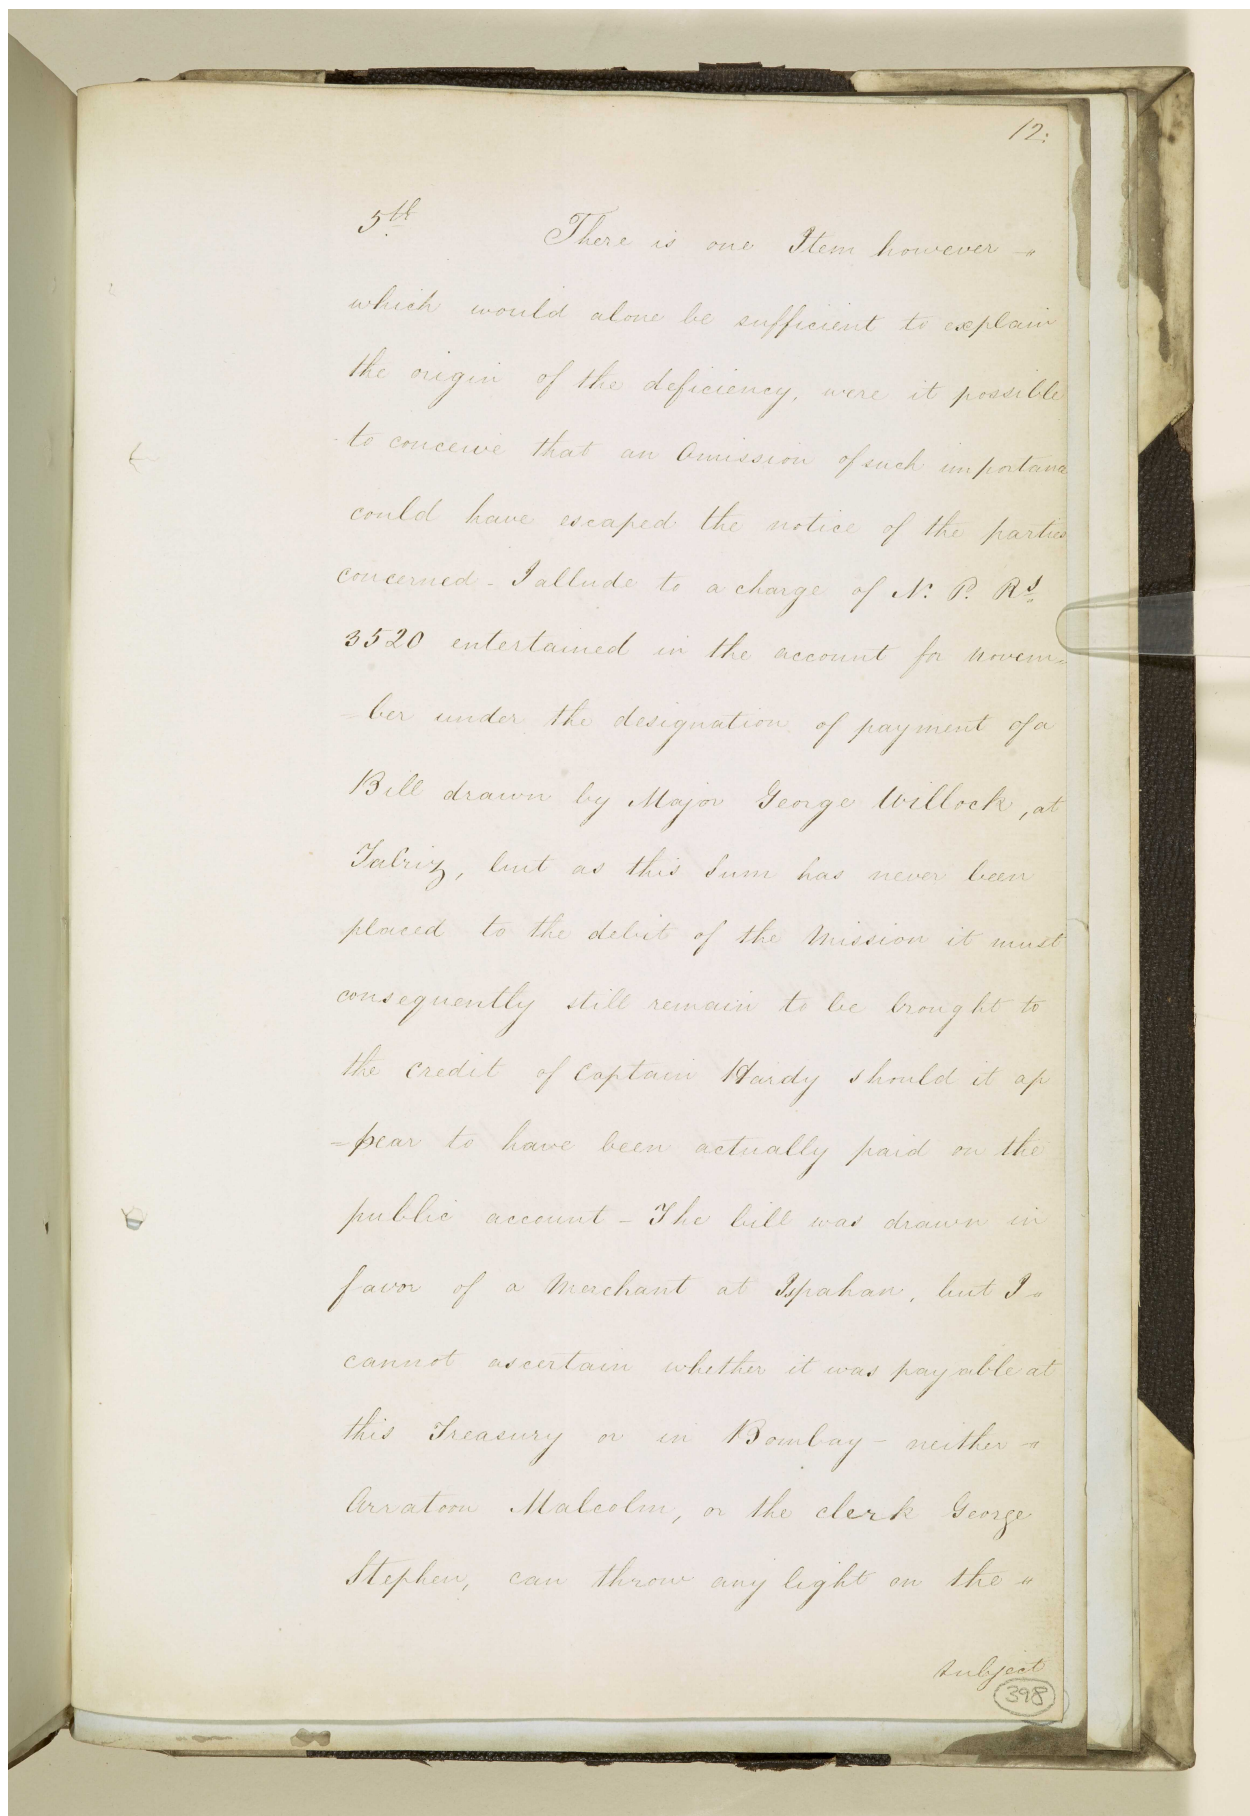 12:
5th There is one Item however -"
which would alone be sufficient to explain
the origin of the deficiency, were it possible
to conceive that an Omission of such importance
could have escaped the notice of the parties
concerned - I allude to a charge of N. P. Rs
3520 entertained in the account for Novem=
=ber under the designation of payment of a
Bill drawn by Major George Willock, at
Tabriz, but as this Sum has never been
placed to the debit of the Mission it must
consequently still remain to be brought to
the credit of Captain Hardy should it ap
=pear to have been actually paid on the
public account - The bill was drawn in
favor of a Merchant at Ispahan, but I -"
cannot ascertain whether it was payable at
this Treasury or in Bombay - neither -"
Arratoon Malcolm, or the clerk George
Stephen, can throw any light on the "
subject
398